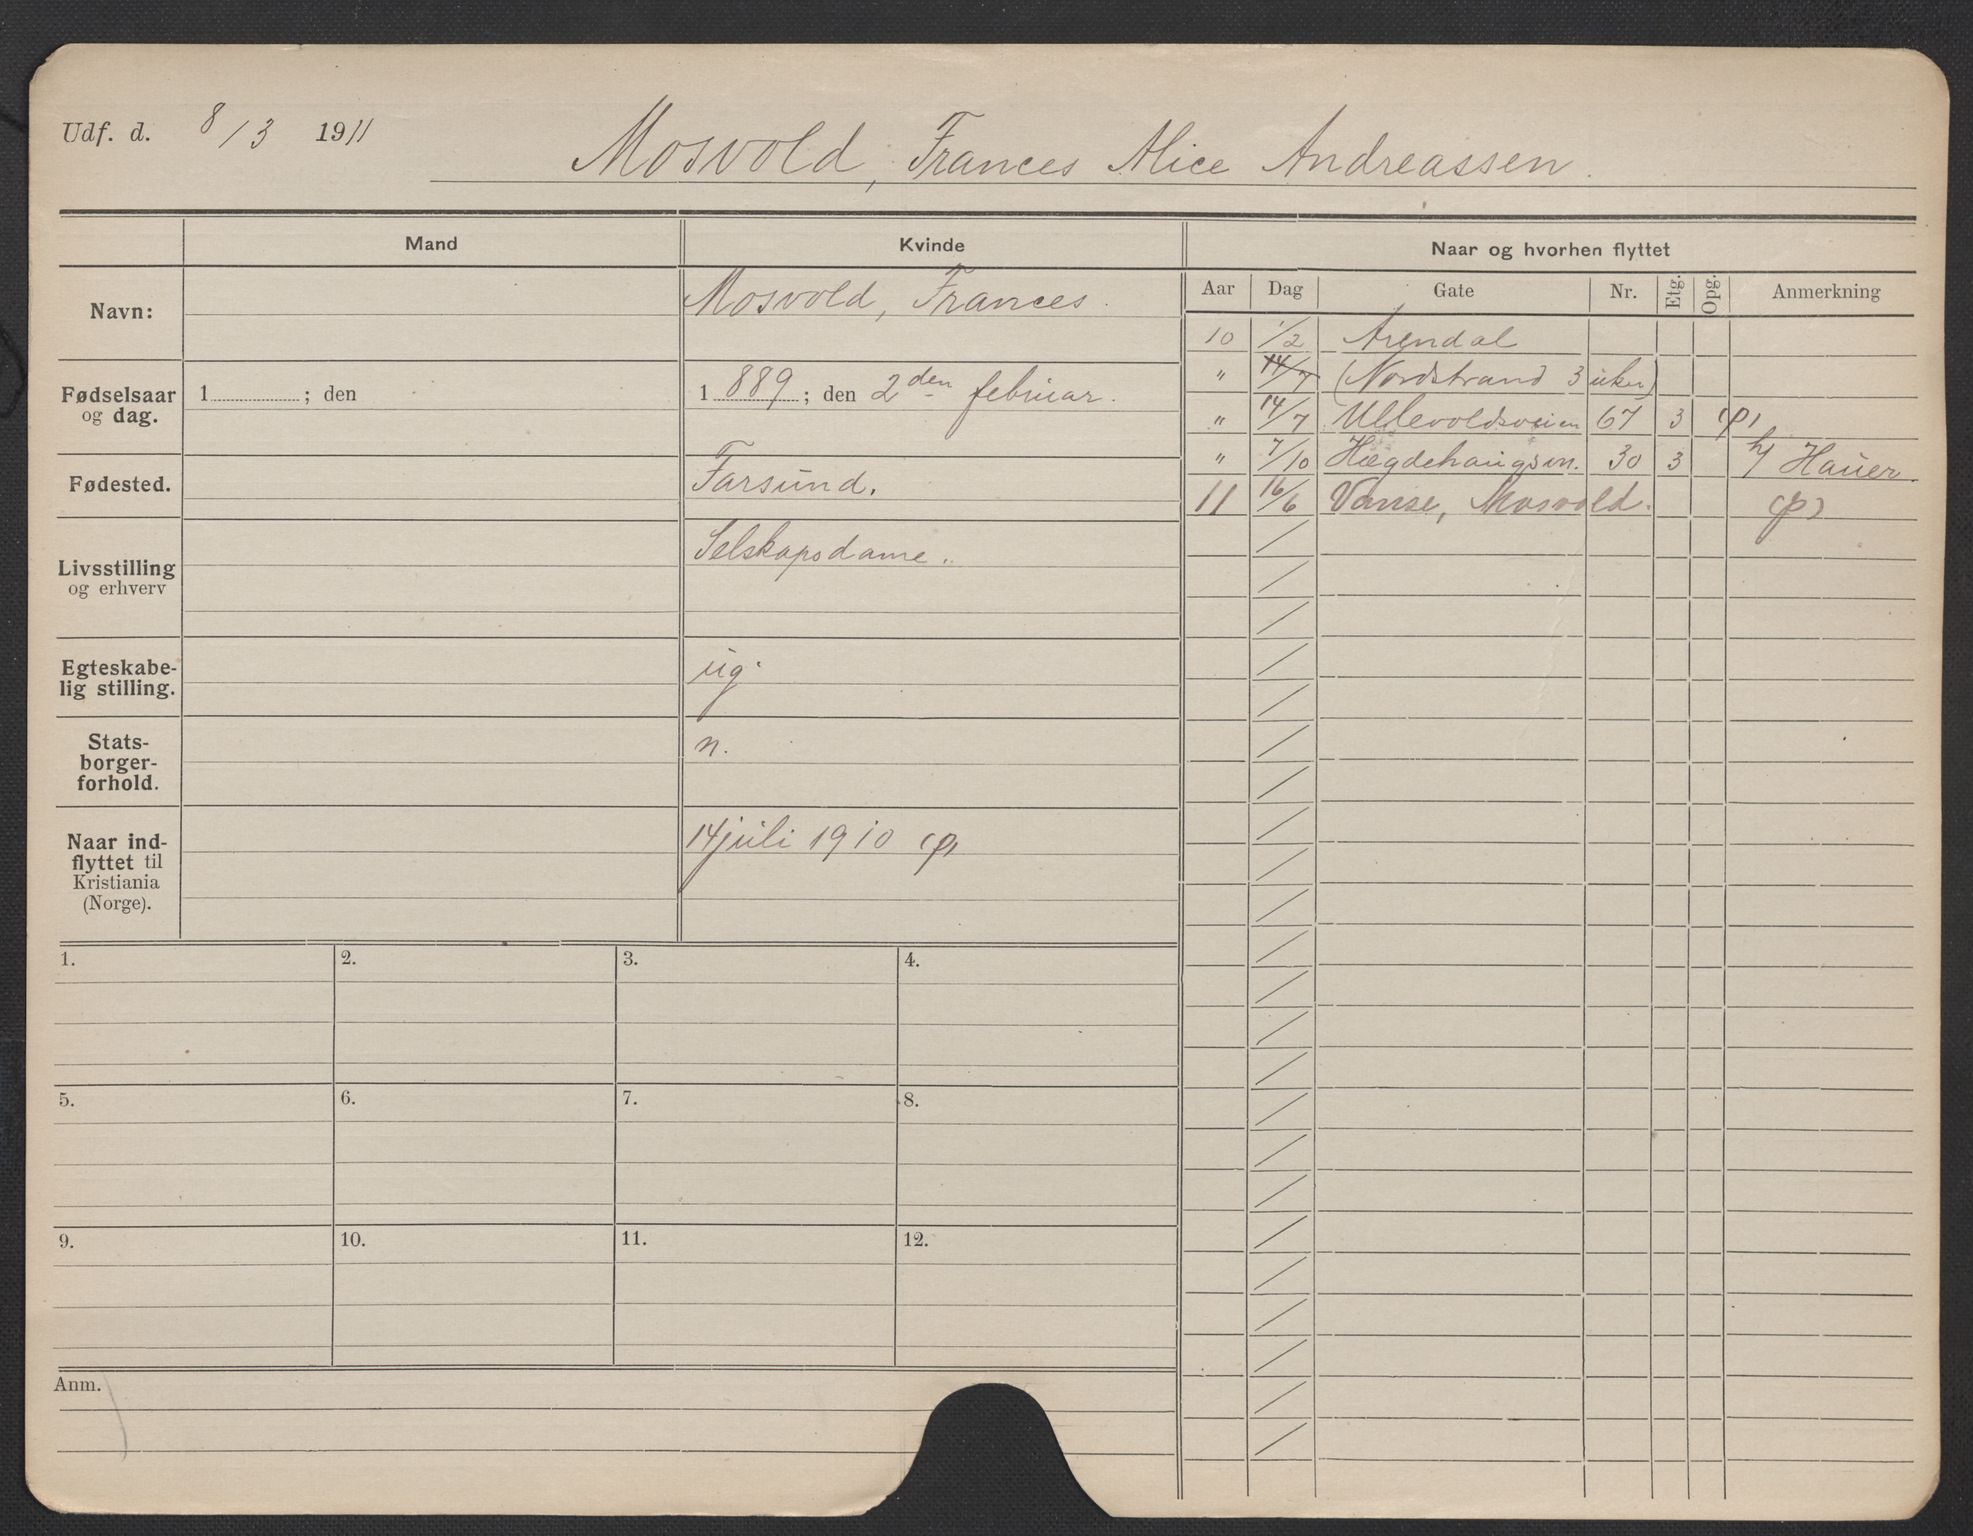 Udf. d. 8/3 1911
Mosvold, Frances Alice Andreassen.
Mand
Kvinde
Naar og hvorhen flyttet
Aar Dag Gate Nr. Etg. Opg. Anmerkning
Navn:
Mosvold, Frances.
Fødselsaar
og dag.
1 ; den
1 889 ; den 2den februar.
Fødested.
Farsund.
Livsstilling
og erhverv
Selskapsdame.
Egteskabe-
lig stilling.
ug.
Stats-
borger-
forhold.
n.
Naar ind-
flyttet til
Kristiania
(Norge).
14 juli 1910
10 1/2 Arendal
" 14/7 (Nordstrand 3 uker)
" 14/7 Ullevoldsveien 67 3
" 7/10 Hægdehaugsvn. 30 3 h/ Hauer.
11 16/6 Vanse, Mosvold.
1.
2.
3.
4.
5.
6.
7.
8.
9.
10.
11.
12.
Anm.